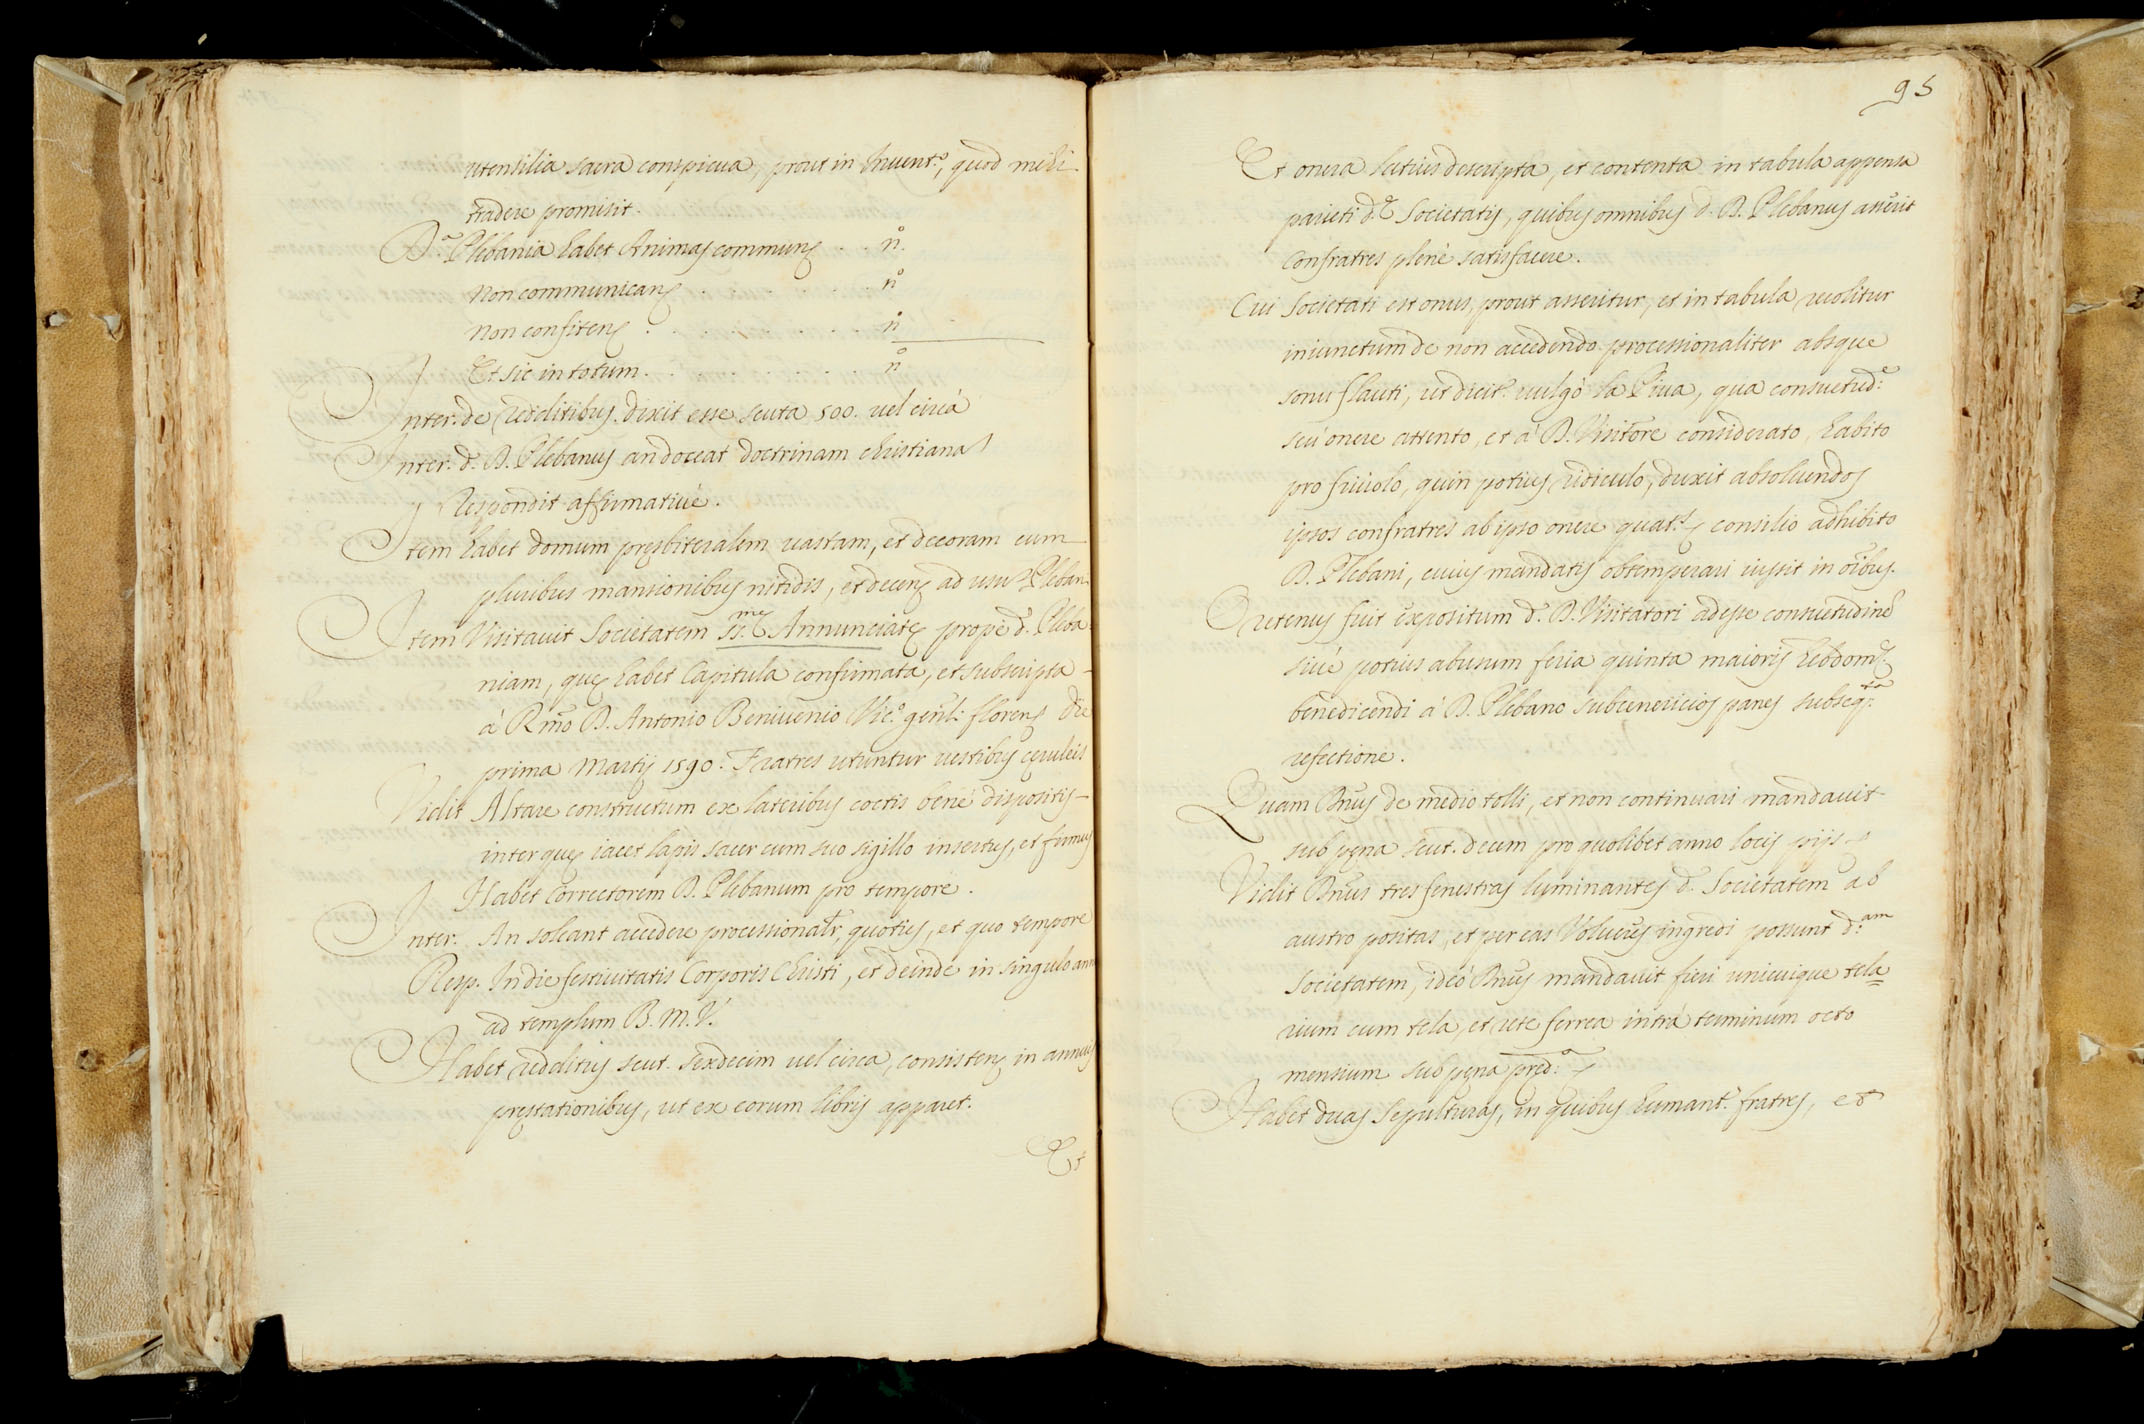 utensilia sacra conspicua, prout in Inuent.º, quod mihi
tradere promisit.
D.ª Plebania habet Animas communę . . nº.
Non communicanę . . . . . . . nº
Non confitenę . . . . . . . . nº
Et sic in totum. . . . . . . . nº
Inter. de redditibus. dixit esse scuta 500. uel circà
Inter. d. D. Plebanus an doceat doctrinam christiana
Respondit affirmatiuè.
Item habet domum pręsbiteralem uastam, et decoram cum
pluribus mansionibus nitidis, et decenę ad usũ Pleban
Item Visitauit Societatem SS.mę Annunciatę propè d. Pleba
niam, quę habet Capitula confirmata, et subscripta
à Rm̃o D. Antonio Beniuenio Vic.º gen̄li florenę Die
prima Martij 1590. Fratres utuntur uestibus cęruleis
Vidit Altare constructum ex lateribus coctis benè dispositis
inter quę iacet lapis sacer cum suo sigillo insertus, et firmus
Habet Correctorem D. Plebanum pro tempore.
Inter. An soleant accedere processionalr̃, quoties, et quo tempore
Resp. In die festiuitatis Corporis Christi, et deinde in singulo ann
ad templum B. M. V.
Habet redditus scut. sexdecim uel circa, consistenę in annuis
pręstationibus, ut ex eorum libris apparet.
Et
95
Et onera latius descripta, et contenta in tabula appensa
parieti d.ę Societatis, quibus omnibus d. D. Plebanus asserit
Confratres plenè satisfacere.
Cui Societati est onus, prout asseritur, et in tabula recolitur
iniunctum de non accedendo processionaliter absque
sonu flauti, ut dicit.r uulgò la Piua, qua consuetud.e
seù onere attento, et à D. Visitore considerato, habito
pro friuolo, quin potius ridiculo, duxit absoluendos
ipsos confratres ab ipso onere quat.s consilio adhibito
D. Plebani, cuius mandatis obtemperari iussit in oĩbus.
Quatenus fuit expositum d. D. Visitatori adesse consuetudinẽ
siuè potius abusum feria quinta maioris hebdom.ę
benedicendi à D. Plebano subcenericios panes subseq.ta
refectione.
Quam Dnũs de medio tolli, et non continuari mandauit
sub pęna scut. decem pro quolibet anno locis pijs
Vidit Dnũs tres fenestras luminantes d. Societatem ab
austro positas, et per eas Volucres ingredi possunt d.am
Societatem, ideò Dnũs mandauit fieri unicuique tela=
rium cum tela, et rete ferrea intrà terminum octo
mensium sub pęna pred.ª
Habet duas Sepulturas, in quibus humant.r fratres, et